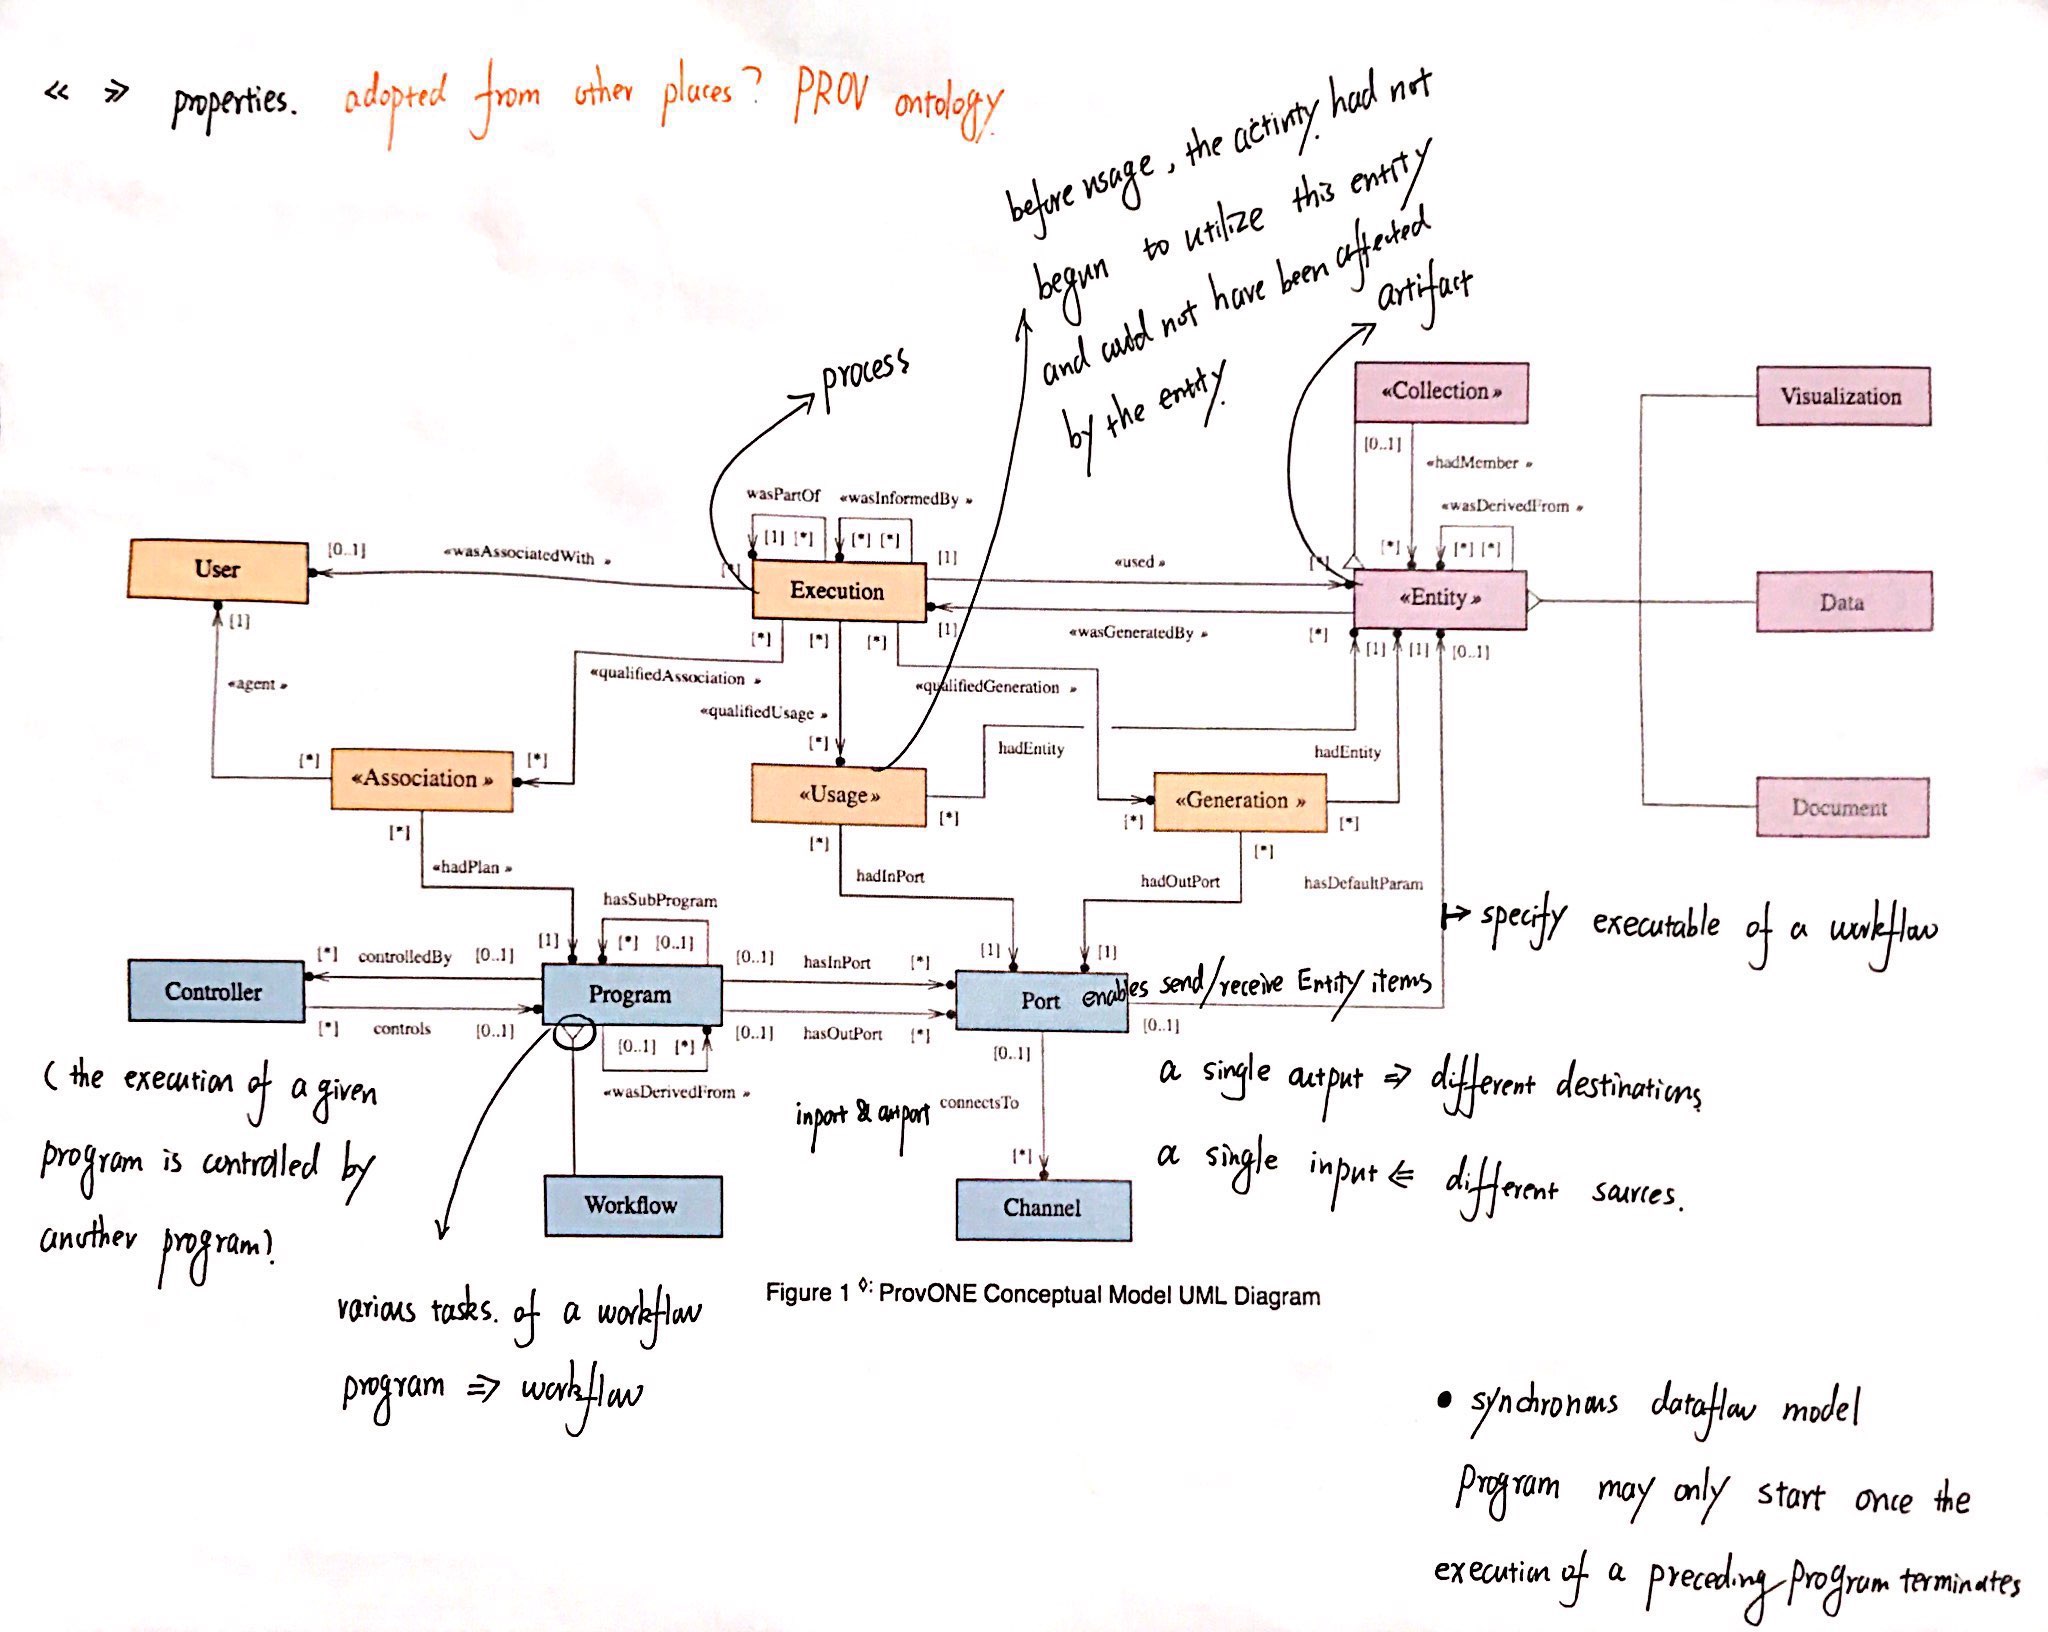 « » properties. adopted from other places? PROV ontology.
before usage, the activity had not
begun to utilize this entity
and could not have been affected
by the entity.
artifact
process
«Collection»
[0..1]
«hadMember »
Visualization
wasPartOf
«wasInformedBy »
«wasDerivedFrom »
[1] [*]
[*] [*]
[*]
[*] [*]
User
[0..1]
«wasAssociatedWith »
[*]
Execution
[1]
«used »
[*]
«Entity»
Data
[1]
[*]
[*]
[*]
[1]
«wasGeneratedBy »
[*]
[1]
[1]
[0..1]
«agent »
«qualifiedAssociation »
«qualifiedGeneration »
«qualifiedUsage »
[*]
[*]
[*]
hadEntity
hadEntity
«Association »
«Usage»
«Generation »
Document
[*]
[*]
[*]
[*]
[*]
[*]
«hadPlan »
hadInPort
hadOutPort
hasDefaultParam
hasSubProgram
specify executable of a workflow
[*] controlledBy [0..1]
[1]
[*] [0..1]
[0..1] hasInPort [*]
[1]
[1]
Controller
Program
Port
enables send/receive Entity items
[*] controls [0..1]
[0..1] [*]
[0..1] hasOutPort [*]
[0..1]
[0..1]
«wasDerivedFrom »
inport & outport
connectsTo
[*]
Workflow
Channel
( the execution of a given
program is controlled by
another program?
a single output ⇒ different destinations
a single input ⇐ different sources.
Figure 1 ◊: ProvONE Conceptual Model UML Diagram
various tasks. of a workflow
program ⇒ workflow
• synchronous dataflow model
Program may only start once the
execution of a preceding Program terminates